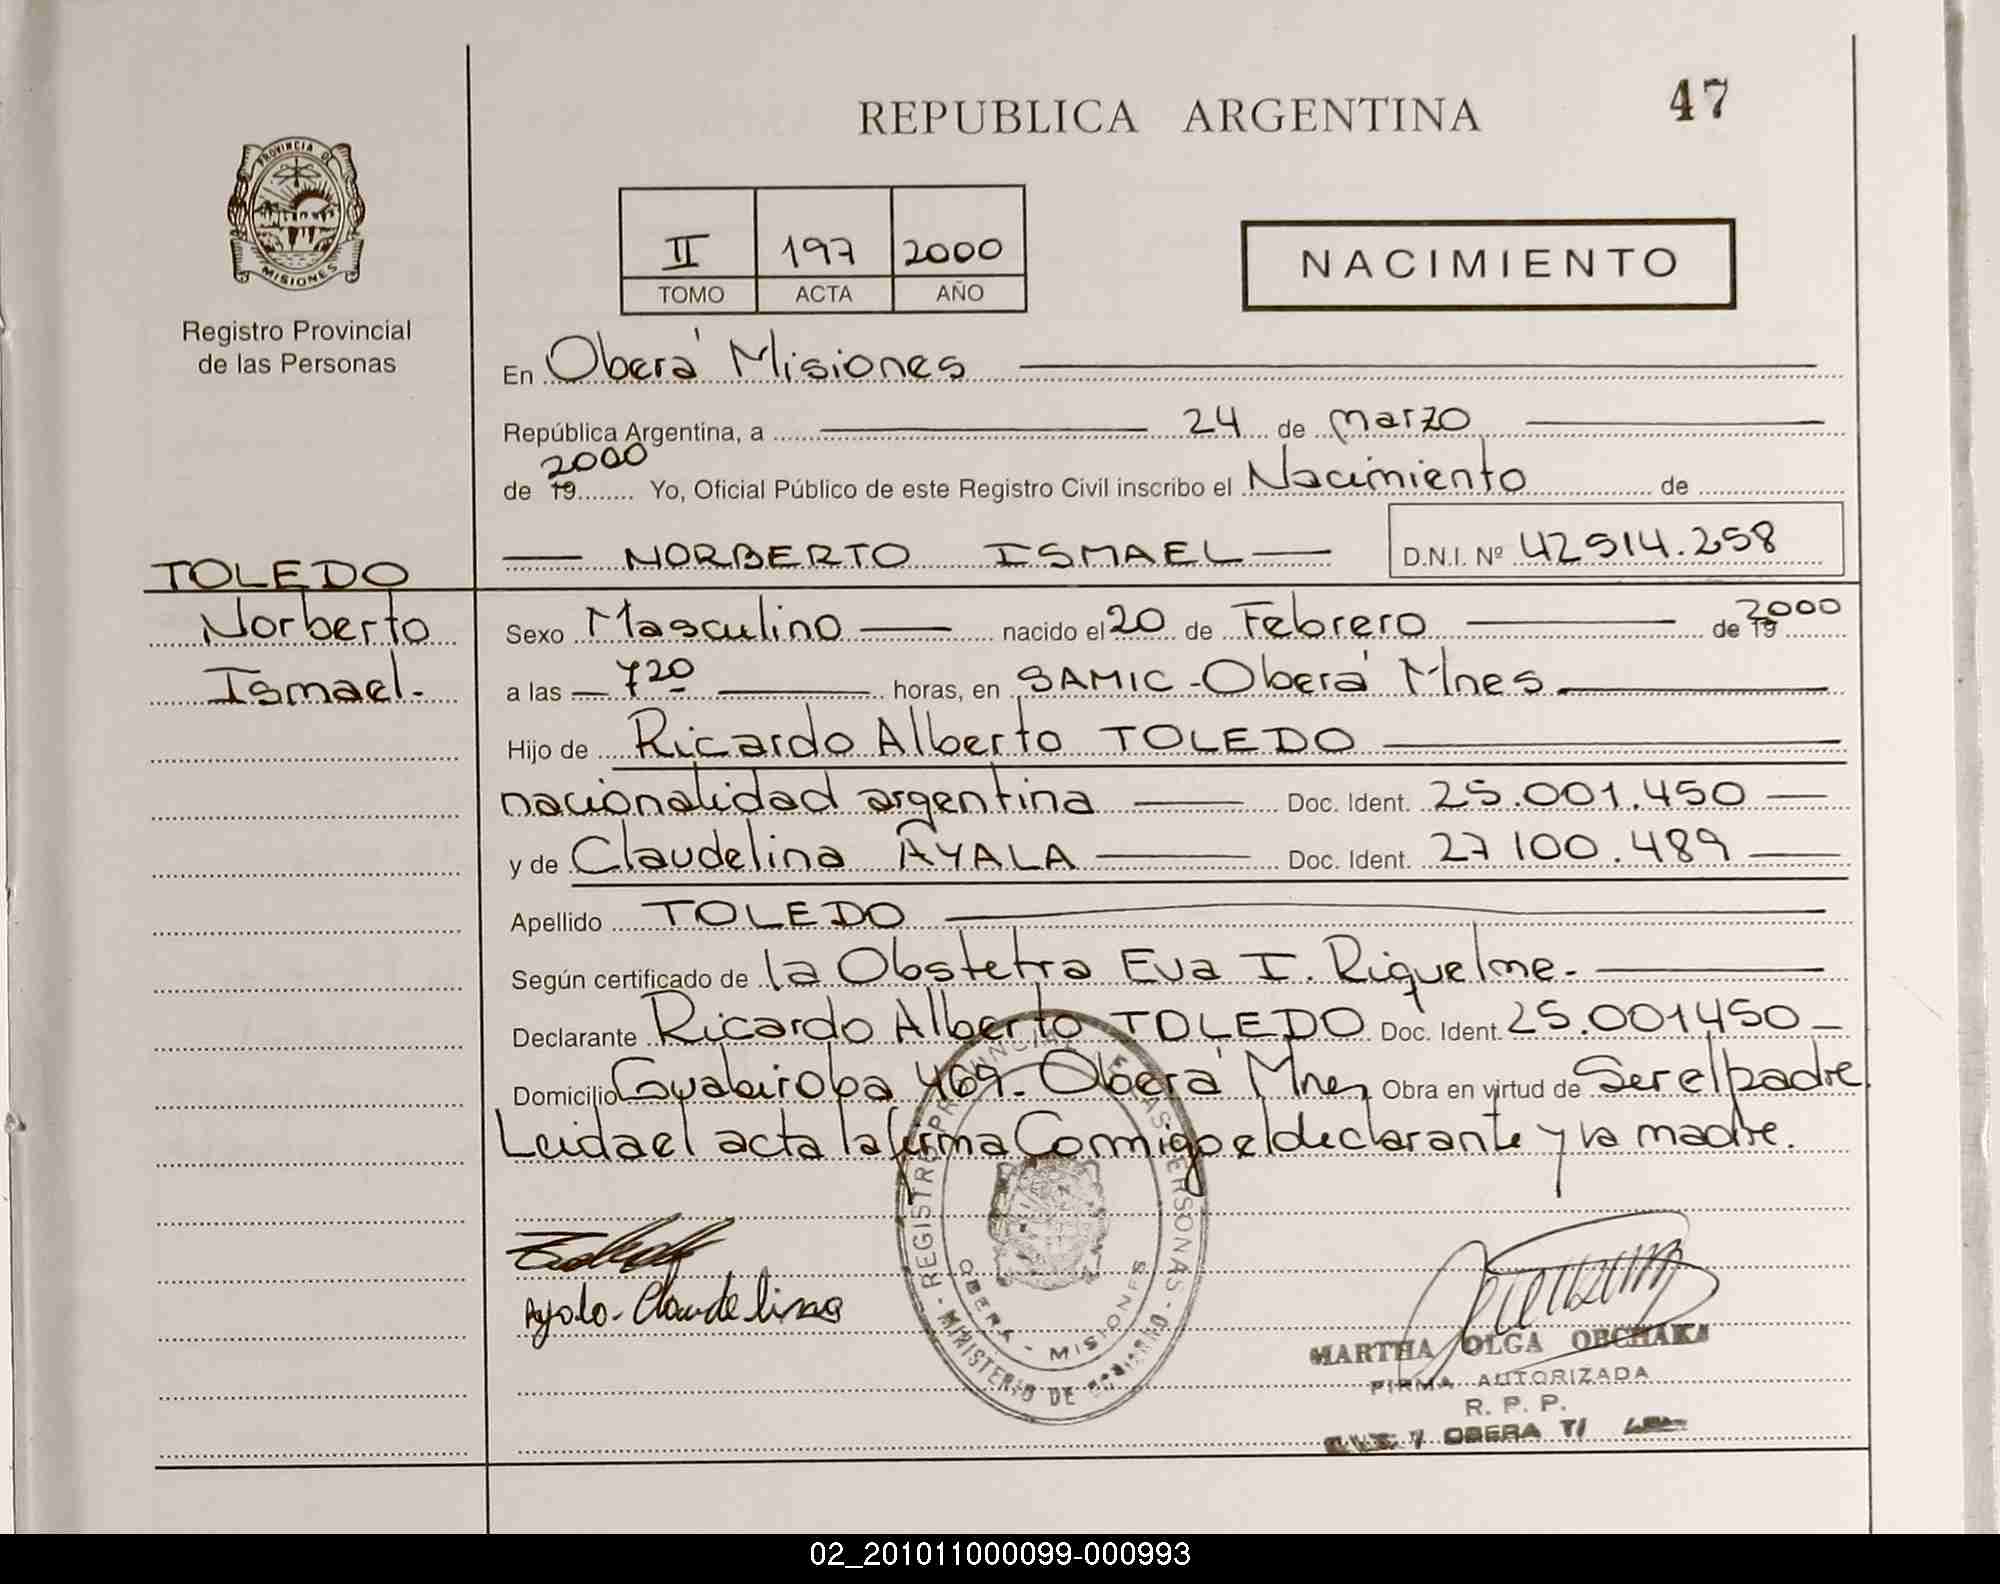 REPUBLICA ARGENTINA
47
PROVINCIA DE
MISIONES
Registro Provincial
de las Personas
II 197 2000
TOMO ACTA AÑO
NACIMIENTO
En Oberá Misiones
República Argentina, a 24 de marzo
2000
de 19 Yo, Oficial Público de este Registro Civil inscribo el Nacimiento de
NORBERTO ISMAEL D.N.I. Nº 42514.258
TOLEDO
Norberto
Ismael.
Sexo Masculino nacido el 20 de Febrero de 19 2000
a las 720 horas, en SAMIC - Oberá Mnes
Hijo de Ricardo Alberto TOLEDO
nacionalidad argentina Doc. Ident. 25.001.450
y de Claudelina AYALA Doc. Ident. 27100.489
Apellido TOLEDO
Según certificado de la Obstetra Eva I. Riquelme.
Declarante Ricardo Alberto TOLEDO Doc. Ident. 25.001450
Domicilio Guabiroba 469. Oberá Mnes Obra en virtud de Ser el padre
Leida el acta la firma Conmigo el declarante y la madre.
Ayala Claudelina
REGISTRO PROVINCIAL DE LAS PERSONAS - MINISTERIO DE GOBIERNO
OBERA - MISIONES
MARTHA OLGA OBCHAKA
FIRMA AUTORIZADA
R. P. P.
OBERA
02_201011000099-000993